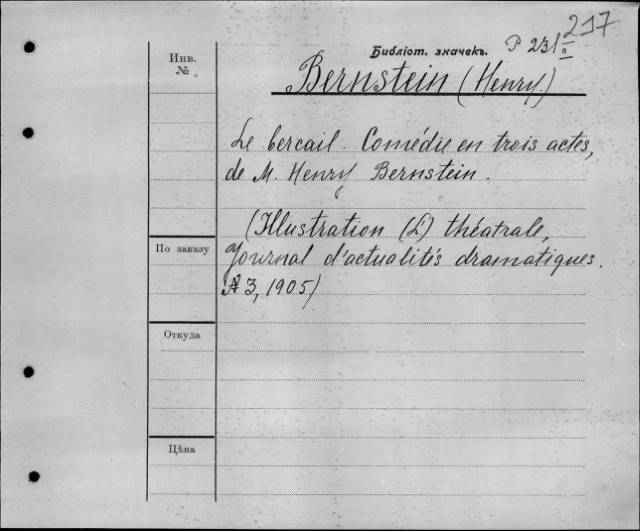 217
Библіот. значекъ. P 23 I/n
Инв.
№
Bernstein (Henry.)
Le bercail. Comédie en trois actes,
de M. Henry Bernstein.
(Illustration (L') théatrale,
По заказу
Journal d'actualités dramatiques.
№ 3, 1905)
Откуда
Цѣна